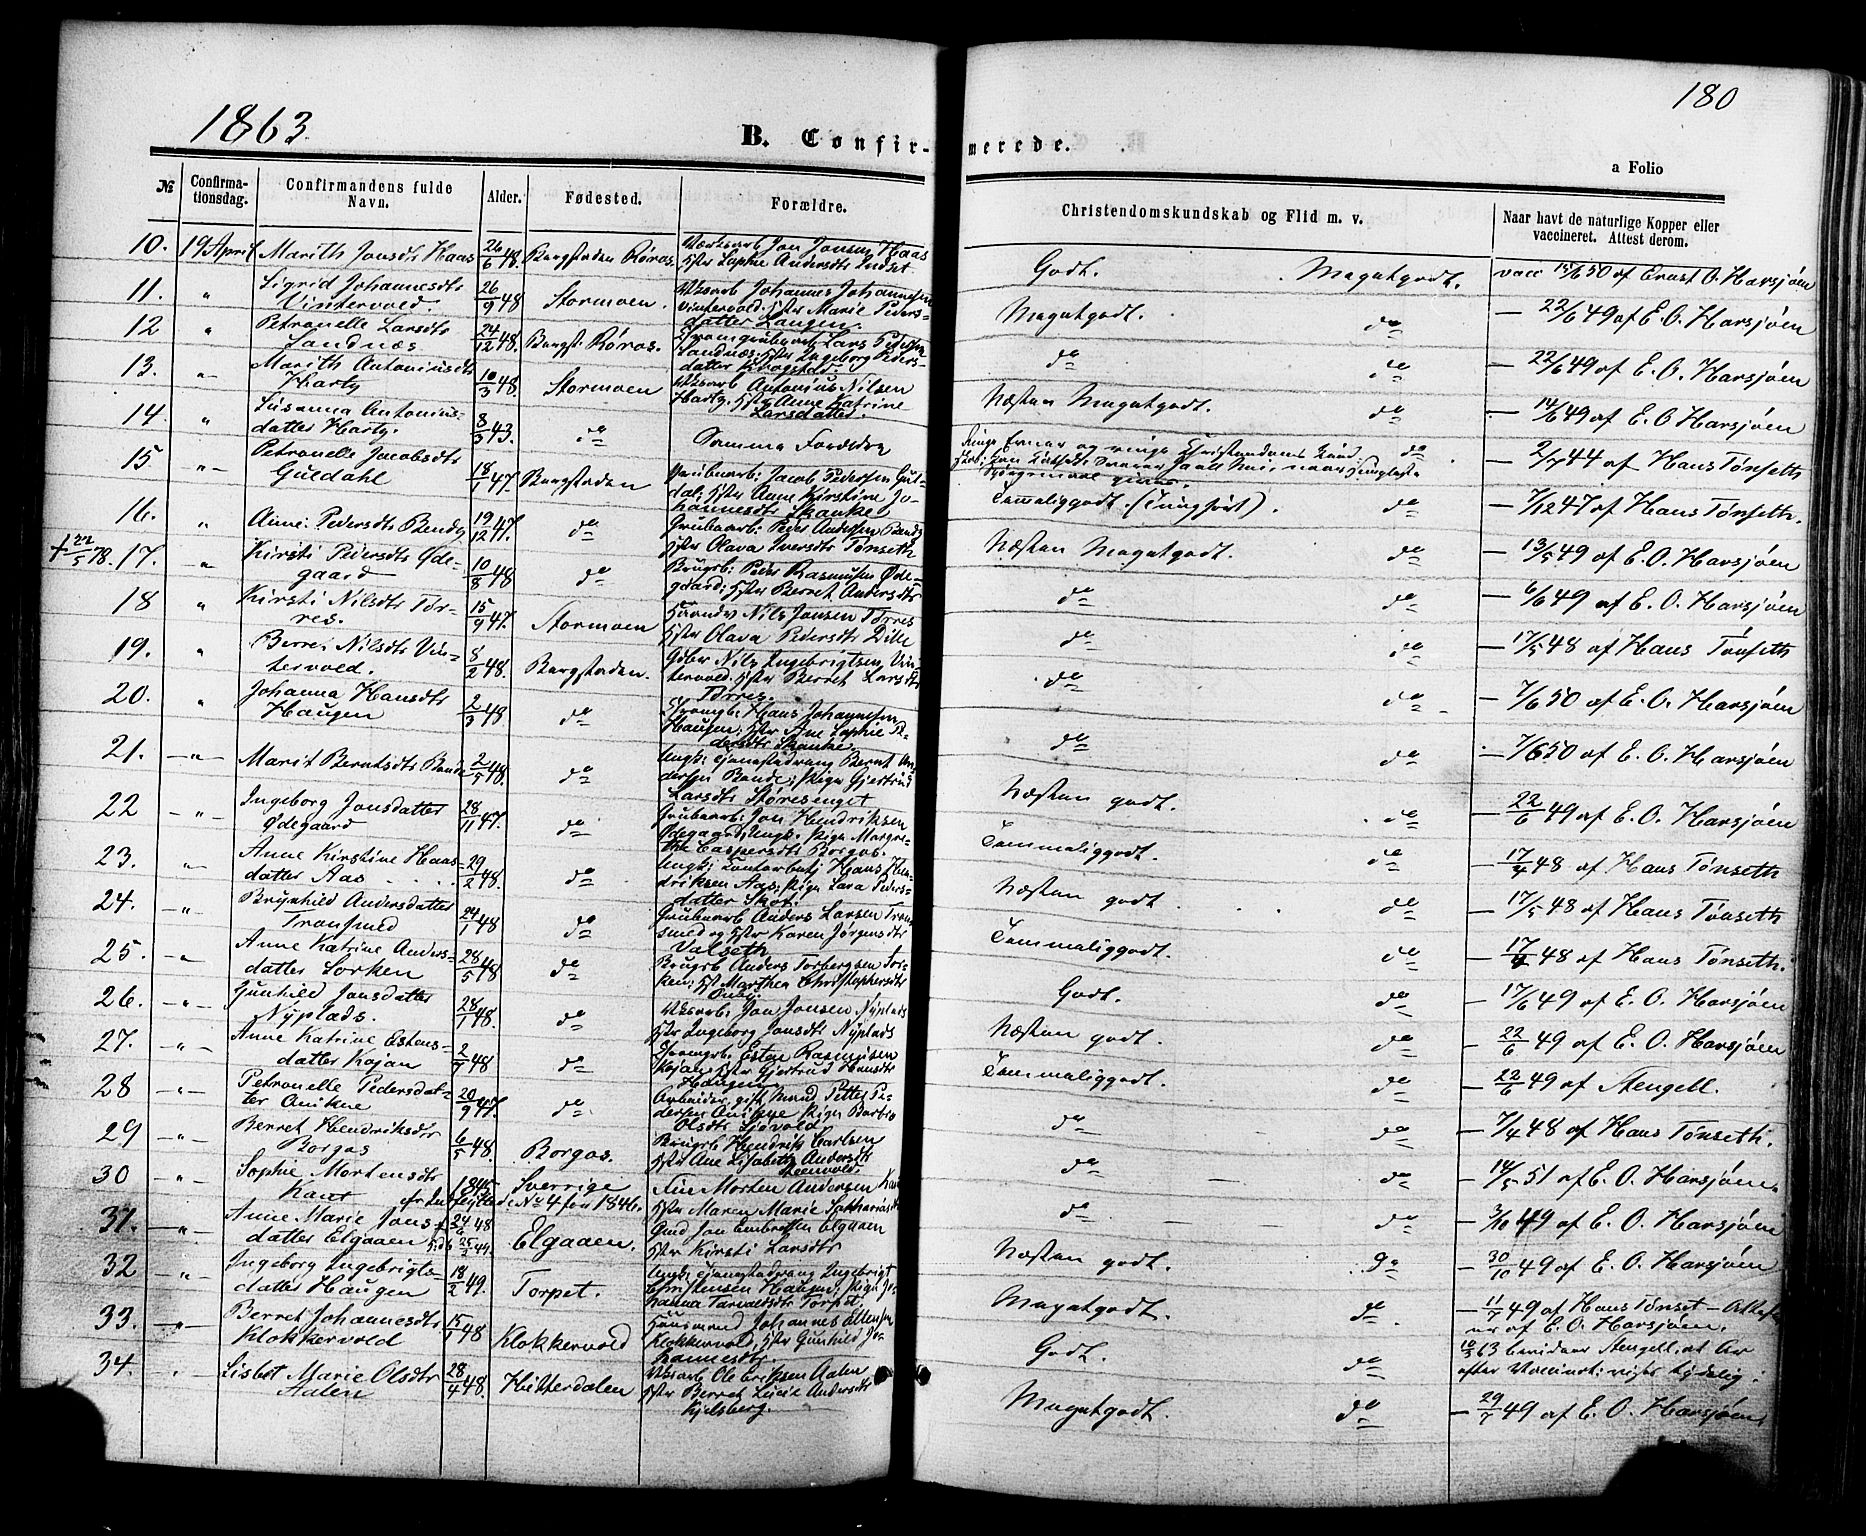 1863.
180
B. Confir-
merede.
a Folio
№
Confirma-
tionsdag.
Confirmandens fulde
Navn.
Alder.
Fødested.
Forældre.
Christendomskundskab og Flid m. v.
Naar havt de naturlige Kopper eller
vaccineret. Attest derom.
10. 19 April Marith Jonsdtr Haas 26/6 48. Bergstaden Røros. Værksarb Jon Jonsen Haas
Hstr Sophie Andersdtr Indset
Godt. Megetgodt. vacc 15/6 50 af Ernst O. Harsjøen
11. " Sigrid Johannesdtr
Vintervold. 26/9 48 Stormoen. Vksarb Johannes Johannesen
Vintervold; Hstr Marie Peders-
datter Langen.
Megetgodt. do — 22/6 49 af E. O. Harsjøen
12 " Petronelle Larsdtr
Sandnæs. 24/12 48. Bergst. Røros. Lars Pedersen
Sandnæs; Hstr Ingeborg Peders-
datter Kragstad.
do do — 22/6 49 af E. O. Harsjøen
13. " Marith Antoniusdtr
Harty 10/3 48. Stormoen Vksarb Antonius Nilsen
Harty; Hstr Anne Katrine
Larsdatter.
Næsten Megetgodt. do — 14/6 49 af E. O. Harsjøen
14. " Susanna Antonius-
datter Harty. 8/3 43. do Samme Forældre
do — 2/7 44 af Hans Tønseth
15 " Petronelle Jacobsdtr
Guldahl 18/1 47. Bergstaden Grubearb: Jacob Pedersen Gul-
dal; Hstr Anne Kirstine Jo-
hannesdtr Skanke
Temmeliggodt. do — 7/12 47 af Hans Tønseth.
16. " Anne Pedersdtr Bendz 19/12 47. do Grubearb: Peder Andersen Bendz
Hstr Olava Iversdtr Tønseth
Næsten Megetgodt. do — 13/5 49 af E. O. Harsjøen
† 22/5 78. 17. " Kirsti Pedersdtr Øde-
gaard 10/8 48 do Brugsb: Peder Rasmusen Øde-
gaard; Hstr Berret Andersdtr
do do — 6/6 49 af E. O. Harsjøen
18 " Kirsti Nilsdtr Tor-
res. 15/9 47. Stormoen Nils Jonsen Torres
Hstr Olava Pedersdtr Dille
do do — 17/5 48 af Hans Tønseth
19. " Berret Nilsdtr Vin-
tervold. 8/2 48. Bergstaden. Nils Ingebrigtsen Vin-
tervold. Hstr Berret Larsdtr
Torres.
do do — 7/6 50 af E. O. Harsjøen
20. " Johanna Hansdtr
Haugen 2/3 48 do Hans Johannesen
Haugen; Hstr Ane Sophie Pe-
dersdtr Skanke
do do — 7/6 50 af E. O. Harsjøen
21. " Marit Berntsdtr Bende 2/5 48. do Ungk: Tjenestedreng Bernt An-
dersen Bende; Pige Gjertrud
Larsdtr Støresenget
Næsten godt. do — 22/6 49 af E. O. Harsjøen
22 " Ingeborg Jonsdatter
Ødegaard 28/11 47. do Grubearb Jon Hendriksen
Ødegaard, Ungk. Pige Margre-
the Caspersdtr Borgos.
Temmeliggodt. do — 17/4 48 af Hans Tønseth
23. " Anne Kirstine Hans-
datter Aas 29/2 48. do Ungk: Hans Hen-
driksen Aas; Pige Sara Peders-
datter Skot.
Næsten godt. do — 17/5 48 af Hans Tønseth
24. " Brynhild Andersdatter
Tronsmed 24/1 48 do Grubearb Anders Larsen Trons
smed og Hstr Karen Jørgensdtr
Valseth
Temmeliggodt. do — 17/4 48 af Hans Tønseth.
25. " Anne Katrine Anders-
datter Sorken 28/5 48 do Brugsb Anders Torbergsen Sor-
ken; Hst Marthea Christophersdtr
Godt. do — 17/6 49 af E. O. Harsjøen
26. " Gunhild Jonsdatter
Nyplads. 28/1 48. do Vksarb: Jon Jonsen Nyplads
Hstr Ingeborg Jonsdtr Nyplads
Næsten godt. do — 22/6 49 af E. O. Harsjøen
27. " Anne Katrine Estens-
datter Kojan 48 do Esten Rasmusen
Kojan Hstr Gjertrud Hansdtr
Haugen
Temmeliggodt. do — 22/6 49 af Stengell.
28 " Petronelle Pedersdat-
ter Anikne 20/9 47. do Arbeider, gift Mand Petter Pe-
dersen Anikne Pige Barbro
Olsdtr Sjøvold.
do do — 7/4 48 af Hans Tønseth.
29 " Berret Hendriksdtr
Borgos 6/5 48. Borgos. Brugsb: Hendrik Carlsen
Hstr Ane Lisabeth Andersdtr
do do — 14/5 51 af E. O. Harsjøen.
30 " Sophie Mortensdtr
Kant 1845 Sverrige Morten Andersen
No 4 for 1846. Hstr Maren Marie
do — do — 3/10 49 af E. O. Harsjøen
31. " Anne Marie Jons-
datter Elgaaen 48 Elgaaen. Gmd Jon Embretsen Elgaaen
Hstr Kirsti Larsdtr
Næsten godt. do — 30/10 49 af E. O. Harsjøen
32 " Ingeborg Ingebrigts-
datter Haugen 18/2 49. Torpet. Ungk; Tjenestedreng Ingebrigt
Christensen Haugen; Pige Jo-
hanna Torpet.
Megetgodt. do — 11/7 49 af Hans Tønset — Attest
er af E. O. Harsjøen.
33. " Berret Johannesdtr
Klokkervold 15/1 48 Klokkervold Huusmand Johannes Ellensen
Klokkervold, Hstr Gunhild Jo-
hannesdtr
Godt. do 10/3 63 bevidner Stengell, at Ar
efter Vaccinat: vises tydelig.
34. " Lisbet Marie Olsdtr
Aalen 28/4 48. Hitterdalen Vksarb Ole Eriksen Aalen
Hstr Berret Lucie Andersdtr
Kjelsberg.
Megetgodt. do — 29/7 49 af E. O. Harsjøen